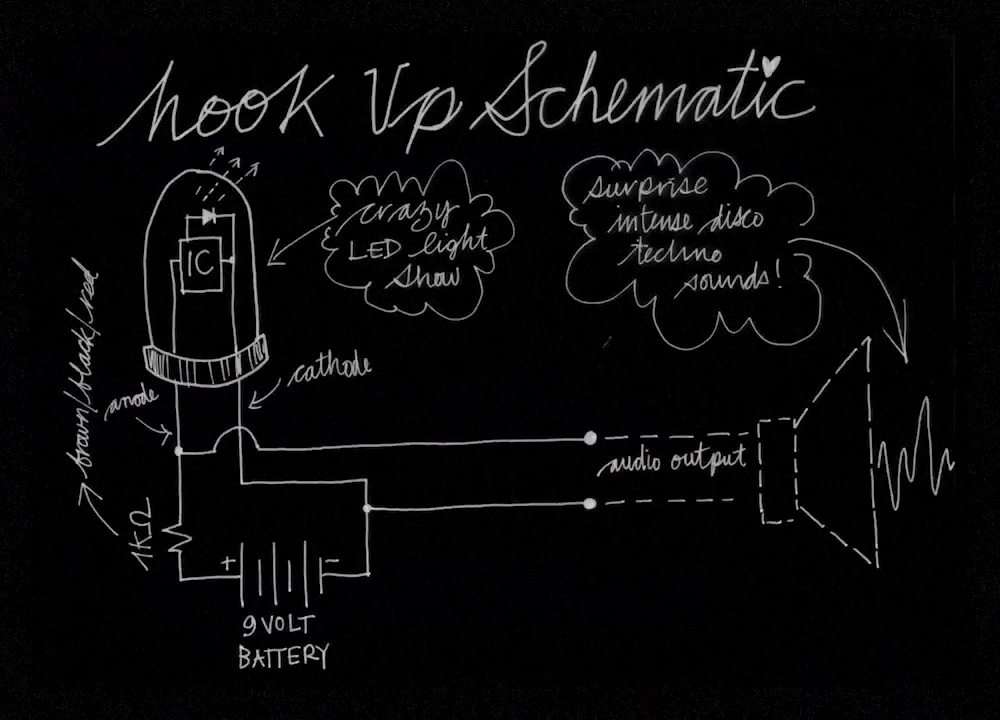 Hook Up Schematic
crazy
LED light
show
surprise
intense disco
techno
sounds!
IC
cathode
anode
brown/black/red
1KΩ
audio output
+
-
9 VOLT
BATTERY